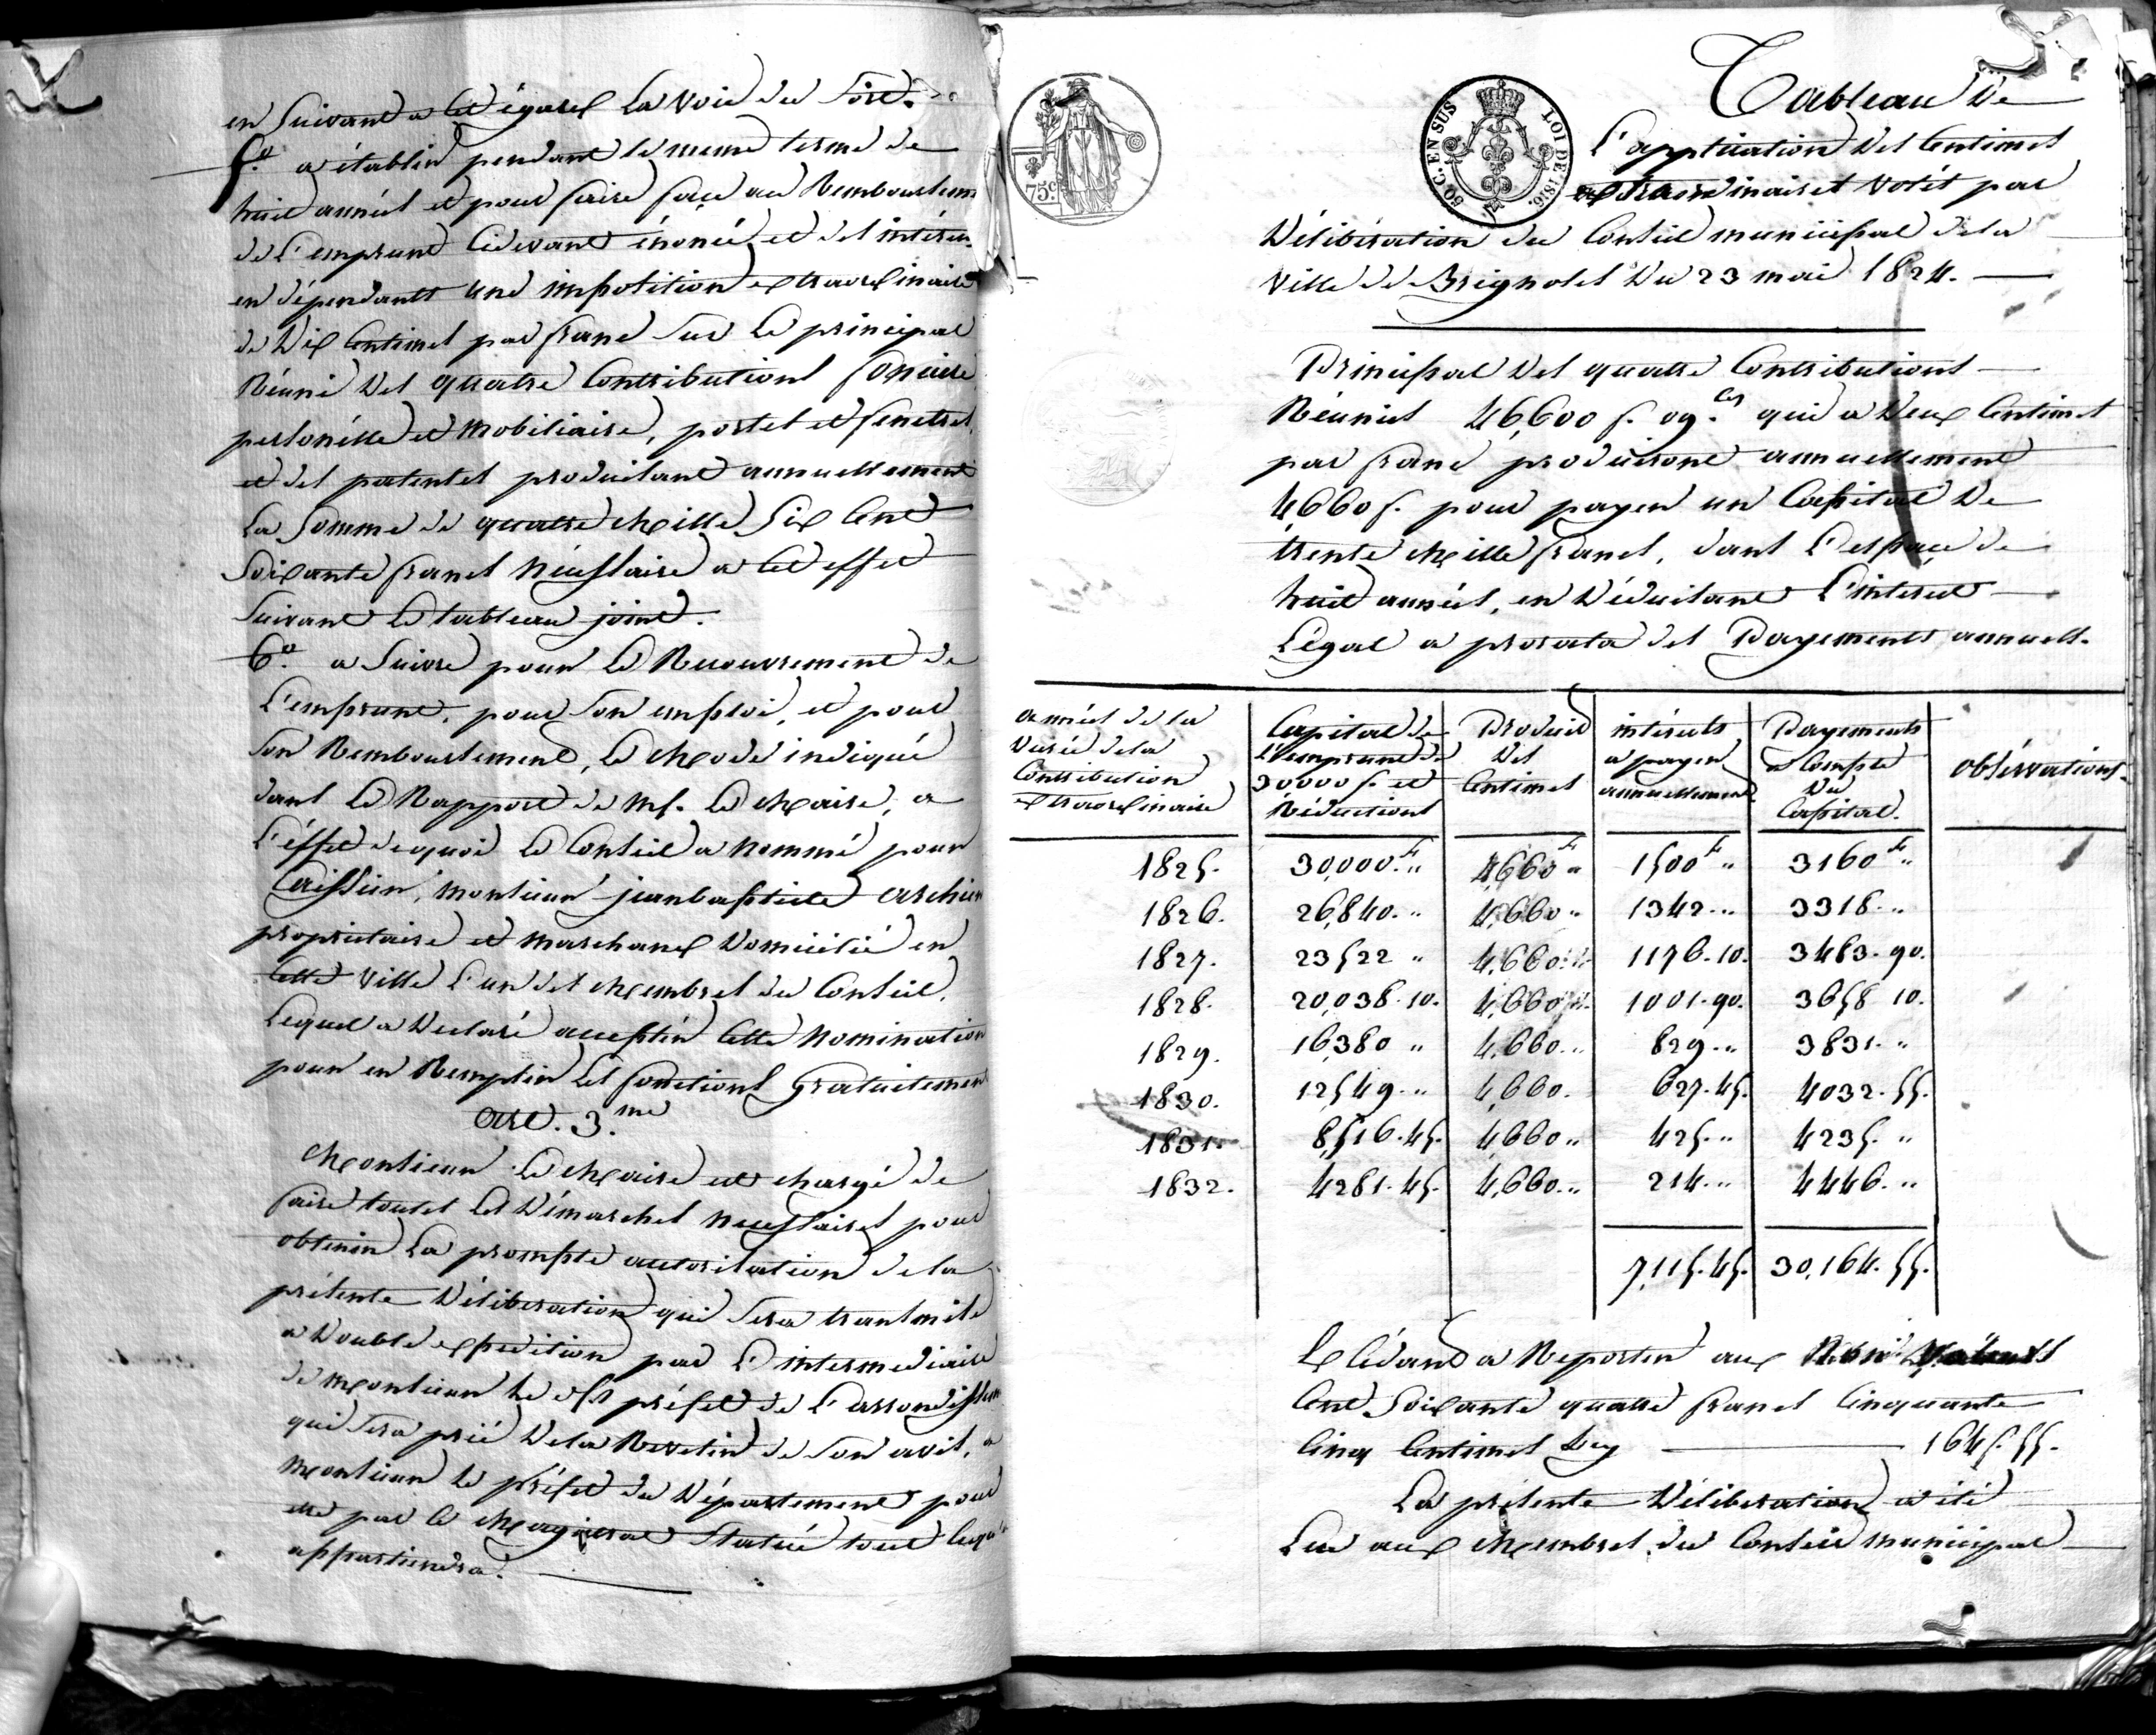 en suivant a cet égard la voie du sort.
5.° a établir pendant le meme terme de
huit années et pour faire face au Remboursem
de l'emprunt cidevant énoncé et des intérets
en dépendants une imposition extraordinaire
de dix centimes par franc sur le principal
Réuni des quatre contributions fonciere
personélle et mobiliaire, portes et fenetres,
et des patentes produisant annuellement
la somme de quatre mille six cent
soixante francs nécessaire a cet effet
suivant le tableau joint.
6.° a suivre pour le Recouvrement de
l'emprunt, pour son emploi, et pour
son Remboursement, le mode indiqué
dans le Rapport de Mr. le Maire, a
l'éffet de quoi le Conseil a nommé pour
Caissier, monsieur jeanbaptiste
propriétaire et marchand domicilié en
cette ville l'un des membres du Conseil,
lequel a declaré accepter cette nomination
pour en Remplir les fonctions gratuitement
art. 3.me
Monsieur le Maire est chargé de
faire toutes les démarches necessaires pour
obtenir la prompte autorisation de la
présente délibération qui sera transmise
a double expedition par l'intermediaire
de Monsieur le préfet de l'arrondissem
qui sera prié de la Revetir de son avis, a
Monsieur le préfet du département pour
etre par ce Magistrat statué tout ce qu'il
appartiendra.
Tableau de
l'application des Centimes
extraordinaires votés par
délibération du Conseil municipal de la
ville de Brignoles du 23 mai 1824.
75c.
50 C. EN SUS
LOI DE 1816.
Principal des quatre Contributions
Réunies 46,600 f. 09.es qui a deux Centimes
par franc produiront annuellement
4660 f. pour payer un Capital de
trente mille francs, dans l'espace de
huit années, en déduisant l'intéret
légal a prorata des Payements annuels.
années de la durée de la Contribution extraordinaire | Capital de l'emprunt de 30000 f. et Réductions | Produit des Centimes | intérets a payer annuellement | Payements a Compte du Capital. | obsérvations.
1825. 30,000.F " 4,660F " 1500F " 3160F "
1826. 26,840. " 4,660 " 1342. " 3318. "
1827. 23522 " 4,660. " 1176. 10. 3483. 90.
1828. 20,038. 10. 4,660 ". 1001. 90. 3658 10.
1829. 16,380 " 4,660. " 829. " 3831. "
1830. 12549. " 4,660. 627. 45. 4032. 55.
1831. 8,516. 45. 4,660 " 425. " 4235. "
1832. 4281. 45. 4,660. " 214. " 4446. "
7,115. 45. 30,164. 55.
Excédant a Reporter aux
Cent soixante quatre francs Cinquante
Cinq Centimes Cy 164 f. 55.
La présente délibération a été
lue aux Membres du Conseil municipal